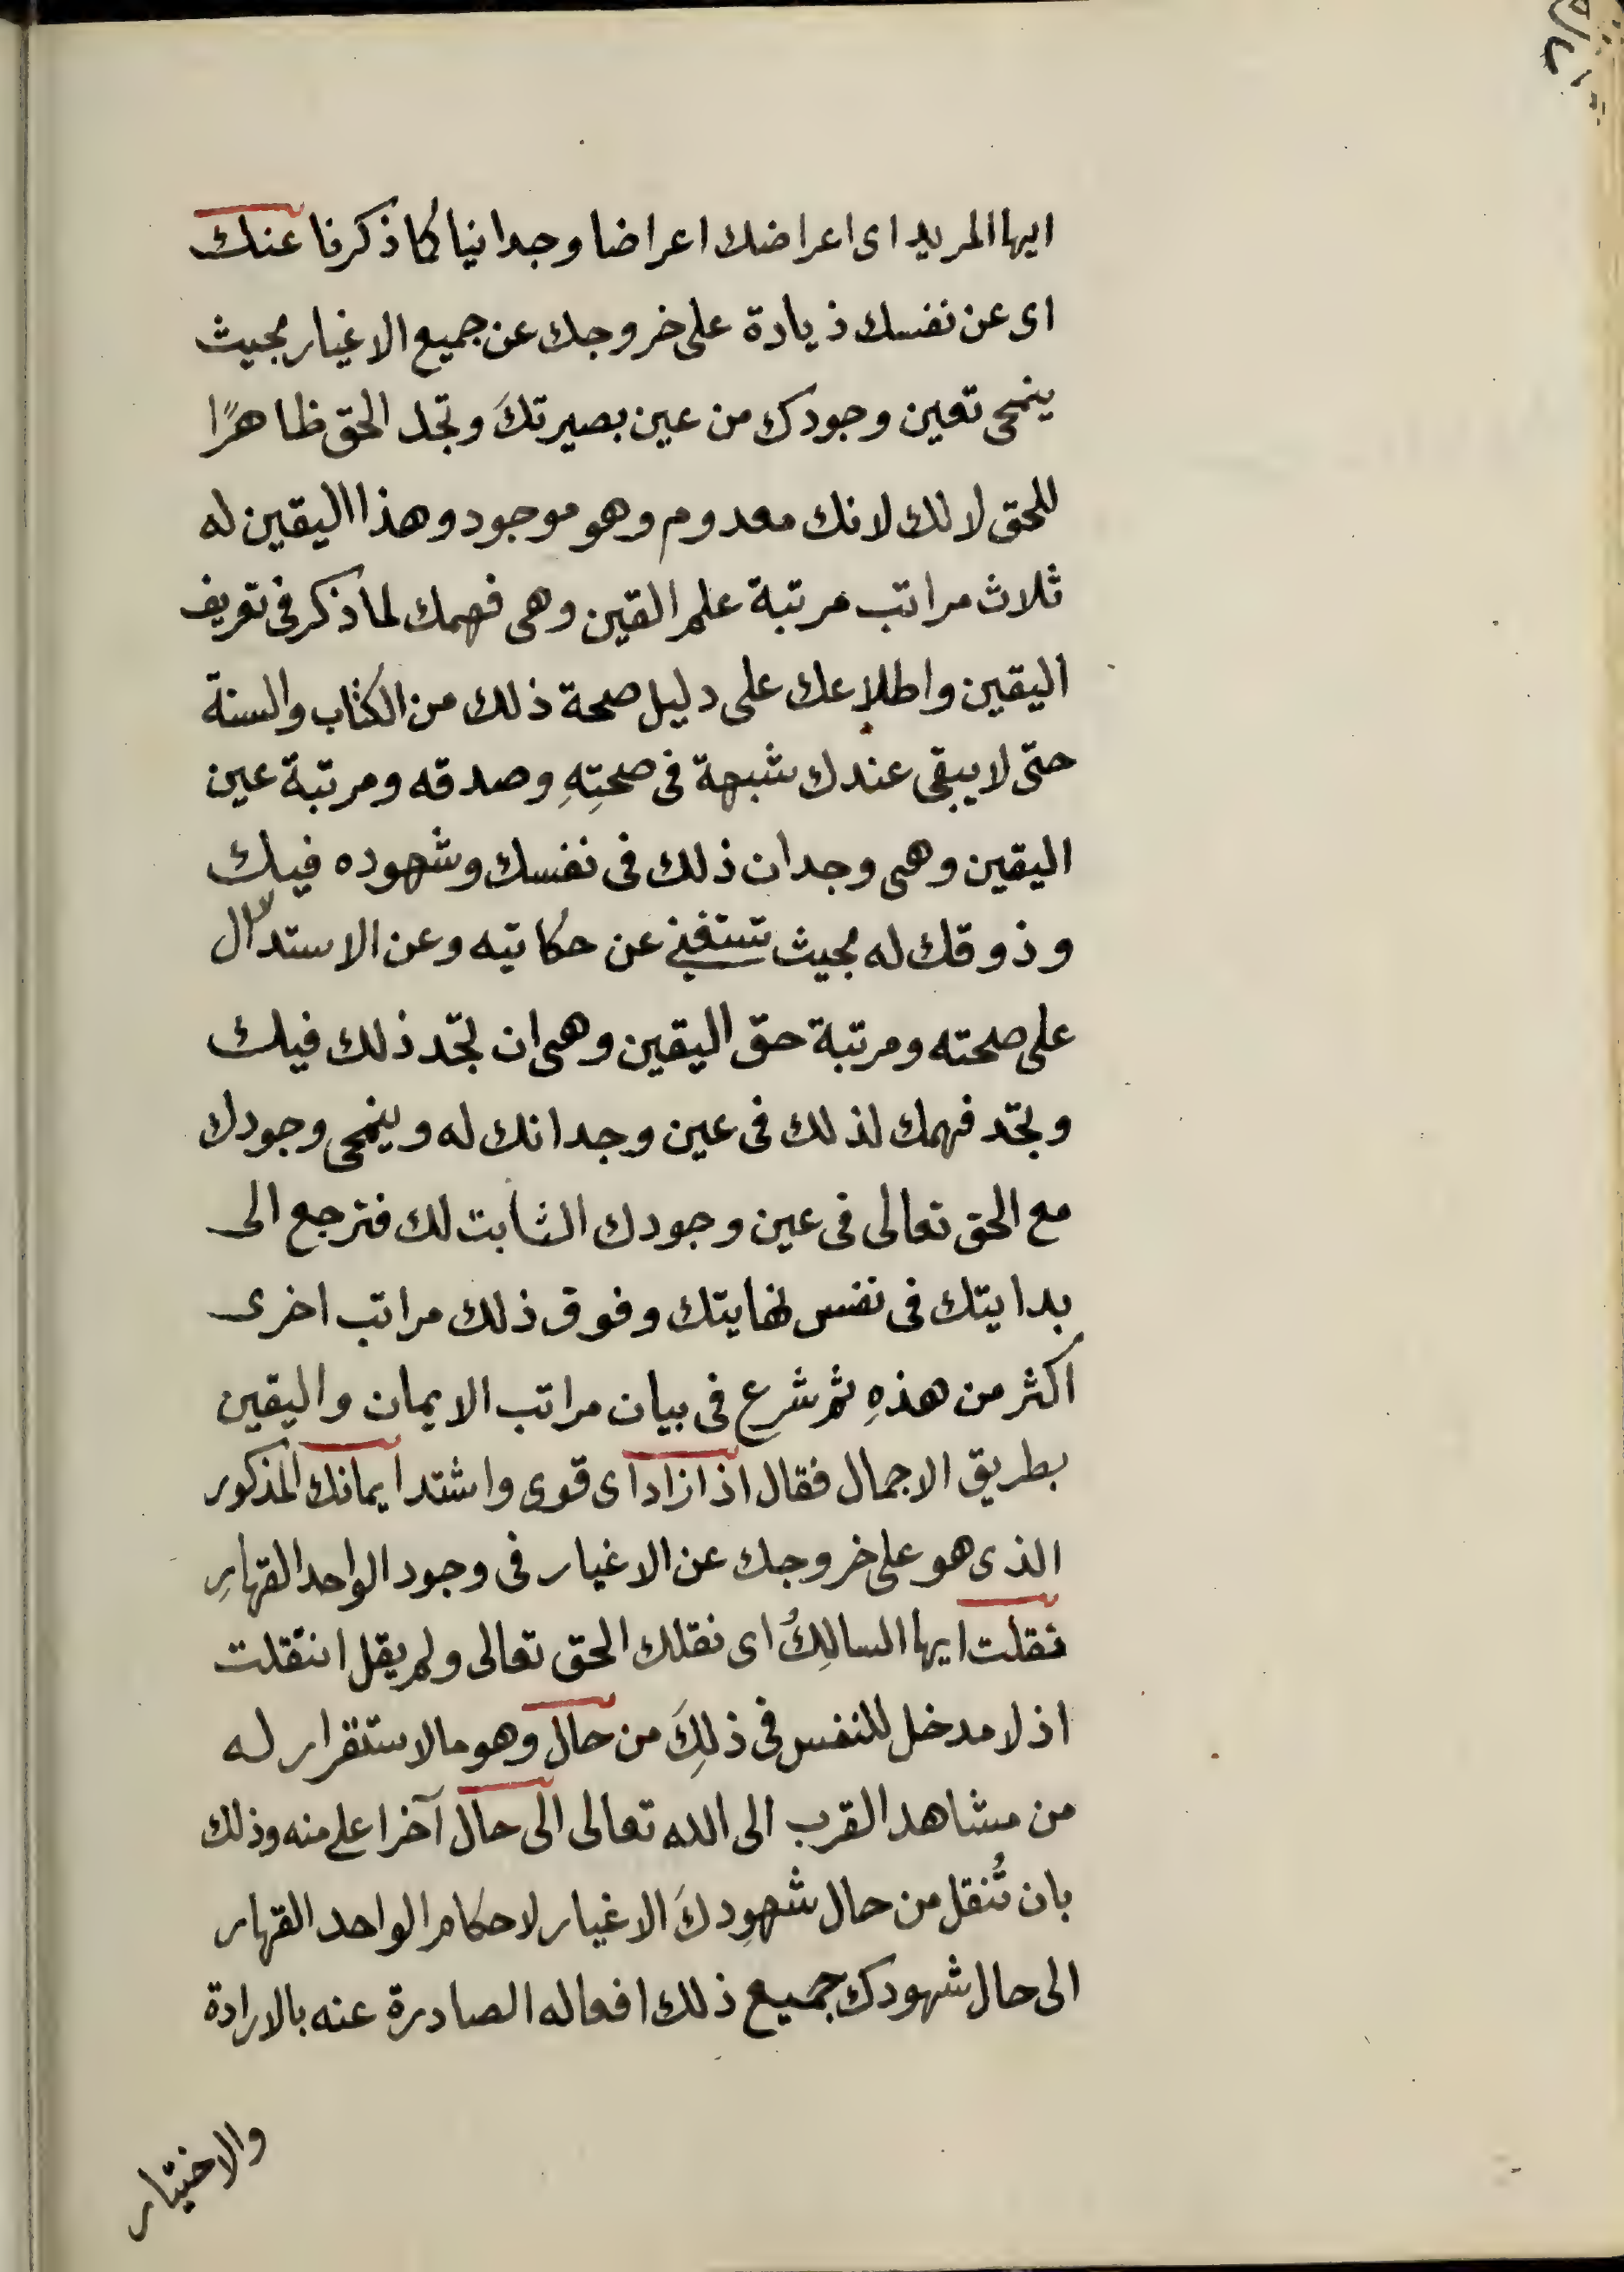 ايها المريد اى اعراضك اعراضا وجدانيا كما ذكرنا عنك
اى عن نفسك ذيادة على خروجك عن جميع الاغيار بحيث
ينمحى تعين وجودك من عين بصيرتكَ وتجد الحق ظاهرًا
للحق لا لك لانك معدوم وهو موجود وهذا اليقين له
ثلاث مراتب مرتبة علم القين وهى فهمك لما ذكر فى تعريف
اليقين واطلاعك على دليل صحة ذلك من الكتاب والسنة
حتى لا يبقى عندك شبهة فى صحتِهِ وصدقه ومرتبة عين
اليقين وهى وجدان ذلك فى نفسك وشهوده فيك
وذوقك له بحيث تستغنى عن حكايته وعن الاستدلال
على صحته ومرتبة حق اليقين وهى ان تجد ذلك فيك
وتجد فهمك لذلك فى عين وجدانك له وينمحى وجودك
مع الحق تعالى فى عين وجودك الثابت لك فترجع الى
بدايتك فى نفس نهايتك وفوق ذلك مراتب اخرى
اكثر من هذهِ ثم شرع فى بيان مراتب الايمان واليقين
بطريق الاجمال فقال اذا زاد اى قوى واشتد ايمانك المذكور
الذى هو على خروجك عن الاغيار فى وجود الواحد القهارِ
نقلت ايها السالِكُ اى نقلك الحق تعالى ولم يقل انتقلت
اذ لا مدخل للنفس فى ذلِكَ من حال وهو مالا ستقرار له
من مشاهد القرب الى الله تعالى الى حال آخر اعلے منه وذلك
بان تُنقل من حال شهودِكَ الاغيار لاحكام الواحد القهار
الى حال شهودك جميع ذلك افعاله الصادرة عنه بالارادة
والاختيار